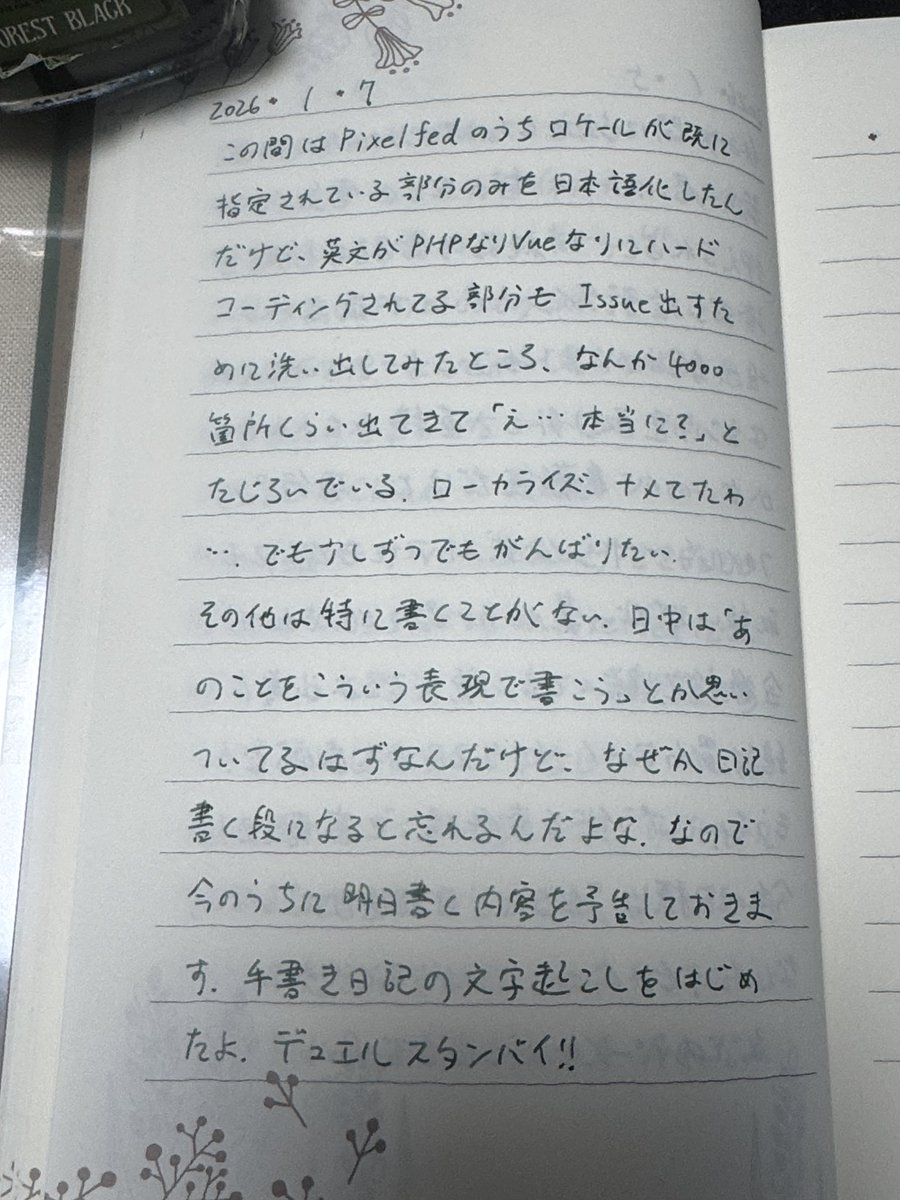 FOREST BLACK
2026・1・7
この間はPixelfedのうちロケールが既に
指定されている部分のみを日本語化したん
だけど、英文がPHPなりVueなりにハード
コーディングされてる部分も Issue出すた
めに洗い出してみたところ、なんか4000
箇所くらい出てきて「え… 本当に?」と
たじろいでいる. ローカライズ、ナメてたわ
… でも少しずつでもがんばりたい.
その他は特に書くことがない. 日中は「あ
のことをこういう表現で書こう」とか思い
ついてるはずなんだけど、なぜか日記
書く段になると忘れるんだよな. なので
今のうちに明日書く内容を予告しておきま
す. 手書き日記の文字起こしをはじめ
たよ. デュエルスタンバイ!!